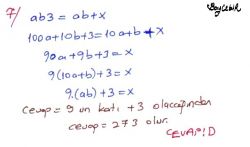 7/ ab3 = ab + x
100a + 10b + 3 = 10a + b + x
90a + 9b + 3 = x
9(10a + b) + 3 = x
9.(ab) + 3 = x
cevap = 9 un katı + 3 olacağından
cevap = 273 olur.
CEVAP D